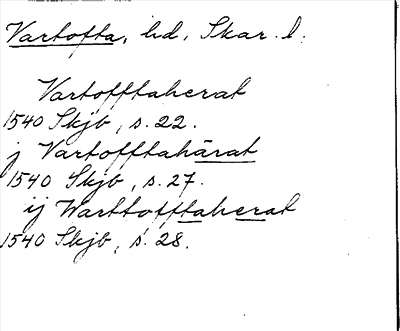 Vartofta, hd, Skar. l.
Vartofftaherat
1540 Skjb, s. 22.
j Vartofftahärat
1540 Skjb, s. 27.
ij Warttofftaherat
1540 Skjb, s. 28.